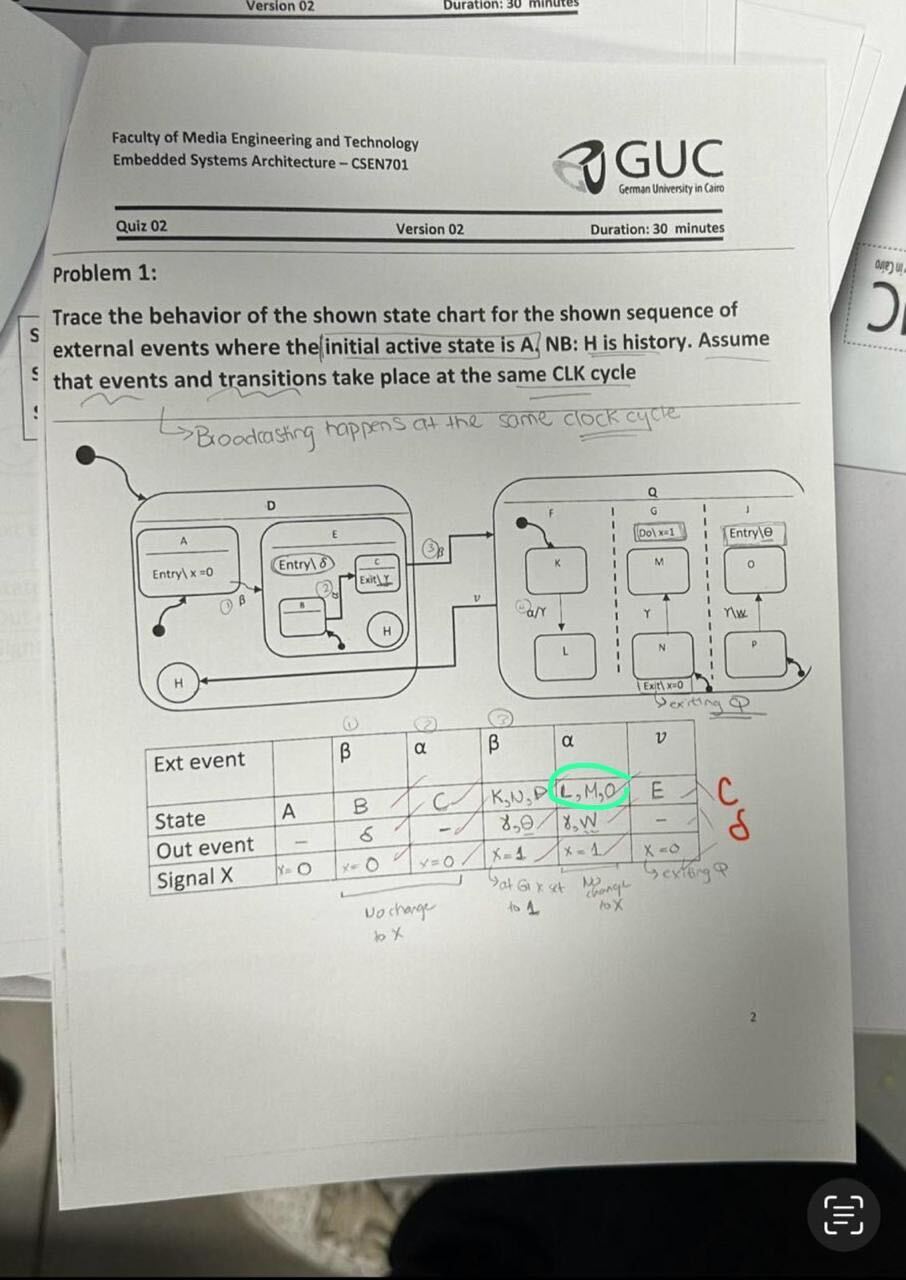 Version 02
Duration: 30 minutes
Faculty of Media Engineering and Technology
Embedded Systems Architecture – CSEN701
GUC
German University in Cairo
Quiz 02
Version 02
Duration: 30 minutes
Problem 1:
Trace the behavior of the shown state chart for the shown sequence of
external events where the initial active state is A. NB: H is history. Assume
that events and transitions take place at the same CLK cycle
Broodcasting happens at the same clock cycle
D
A
Entry\ x =0
① β
E
Entry\ δ
②
B
C
Exit\ɣ
H
H
③ β
ν
Q
F
K
α/ɣ
L
G
Do\ x=1
M
ɣ
N
Exit\ x=0
exiting φ
J
Entry\θ
O
P
① ② ③
Ext event β α β α ν
State A B C K,N,P L,M,O E C
Out event – δ – ɣ,θ ɣ,W – δ
Signal X X=0 X=0 X=0 X=1 X=1 X=0
No change
to X
at G X set
to 1
No
change
to X
exiting φ
2